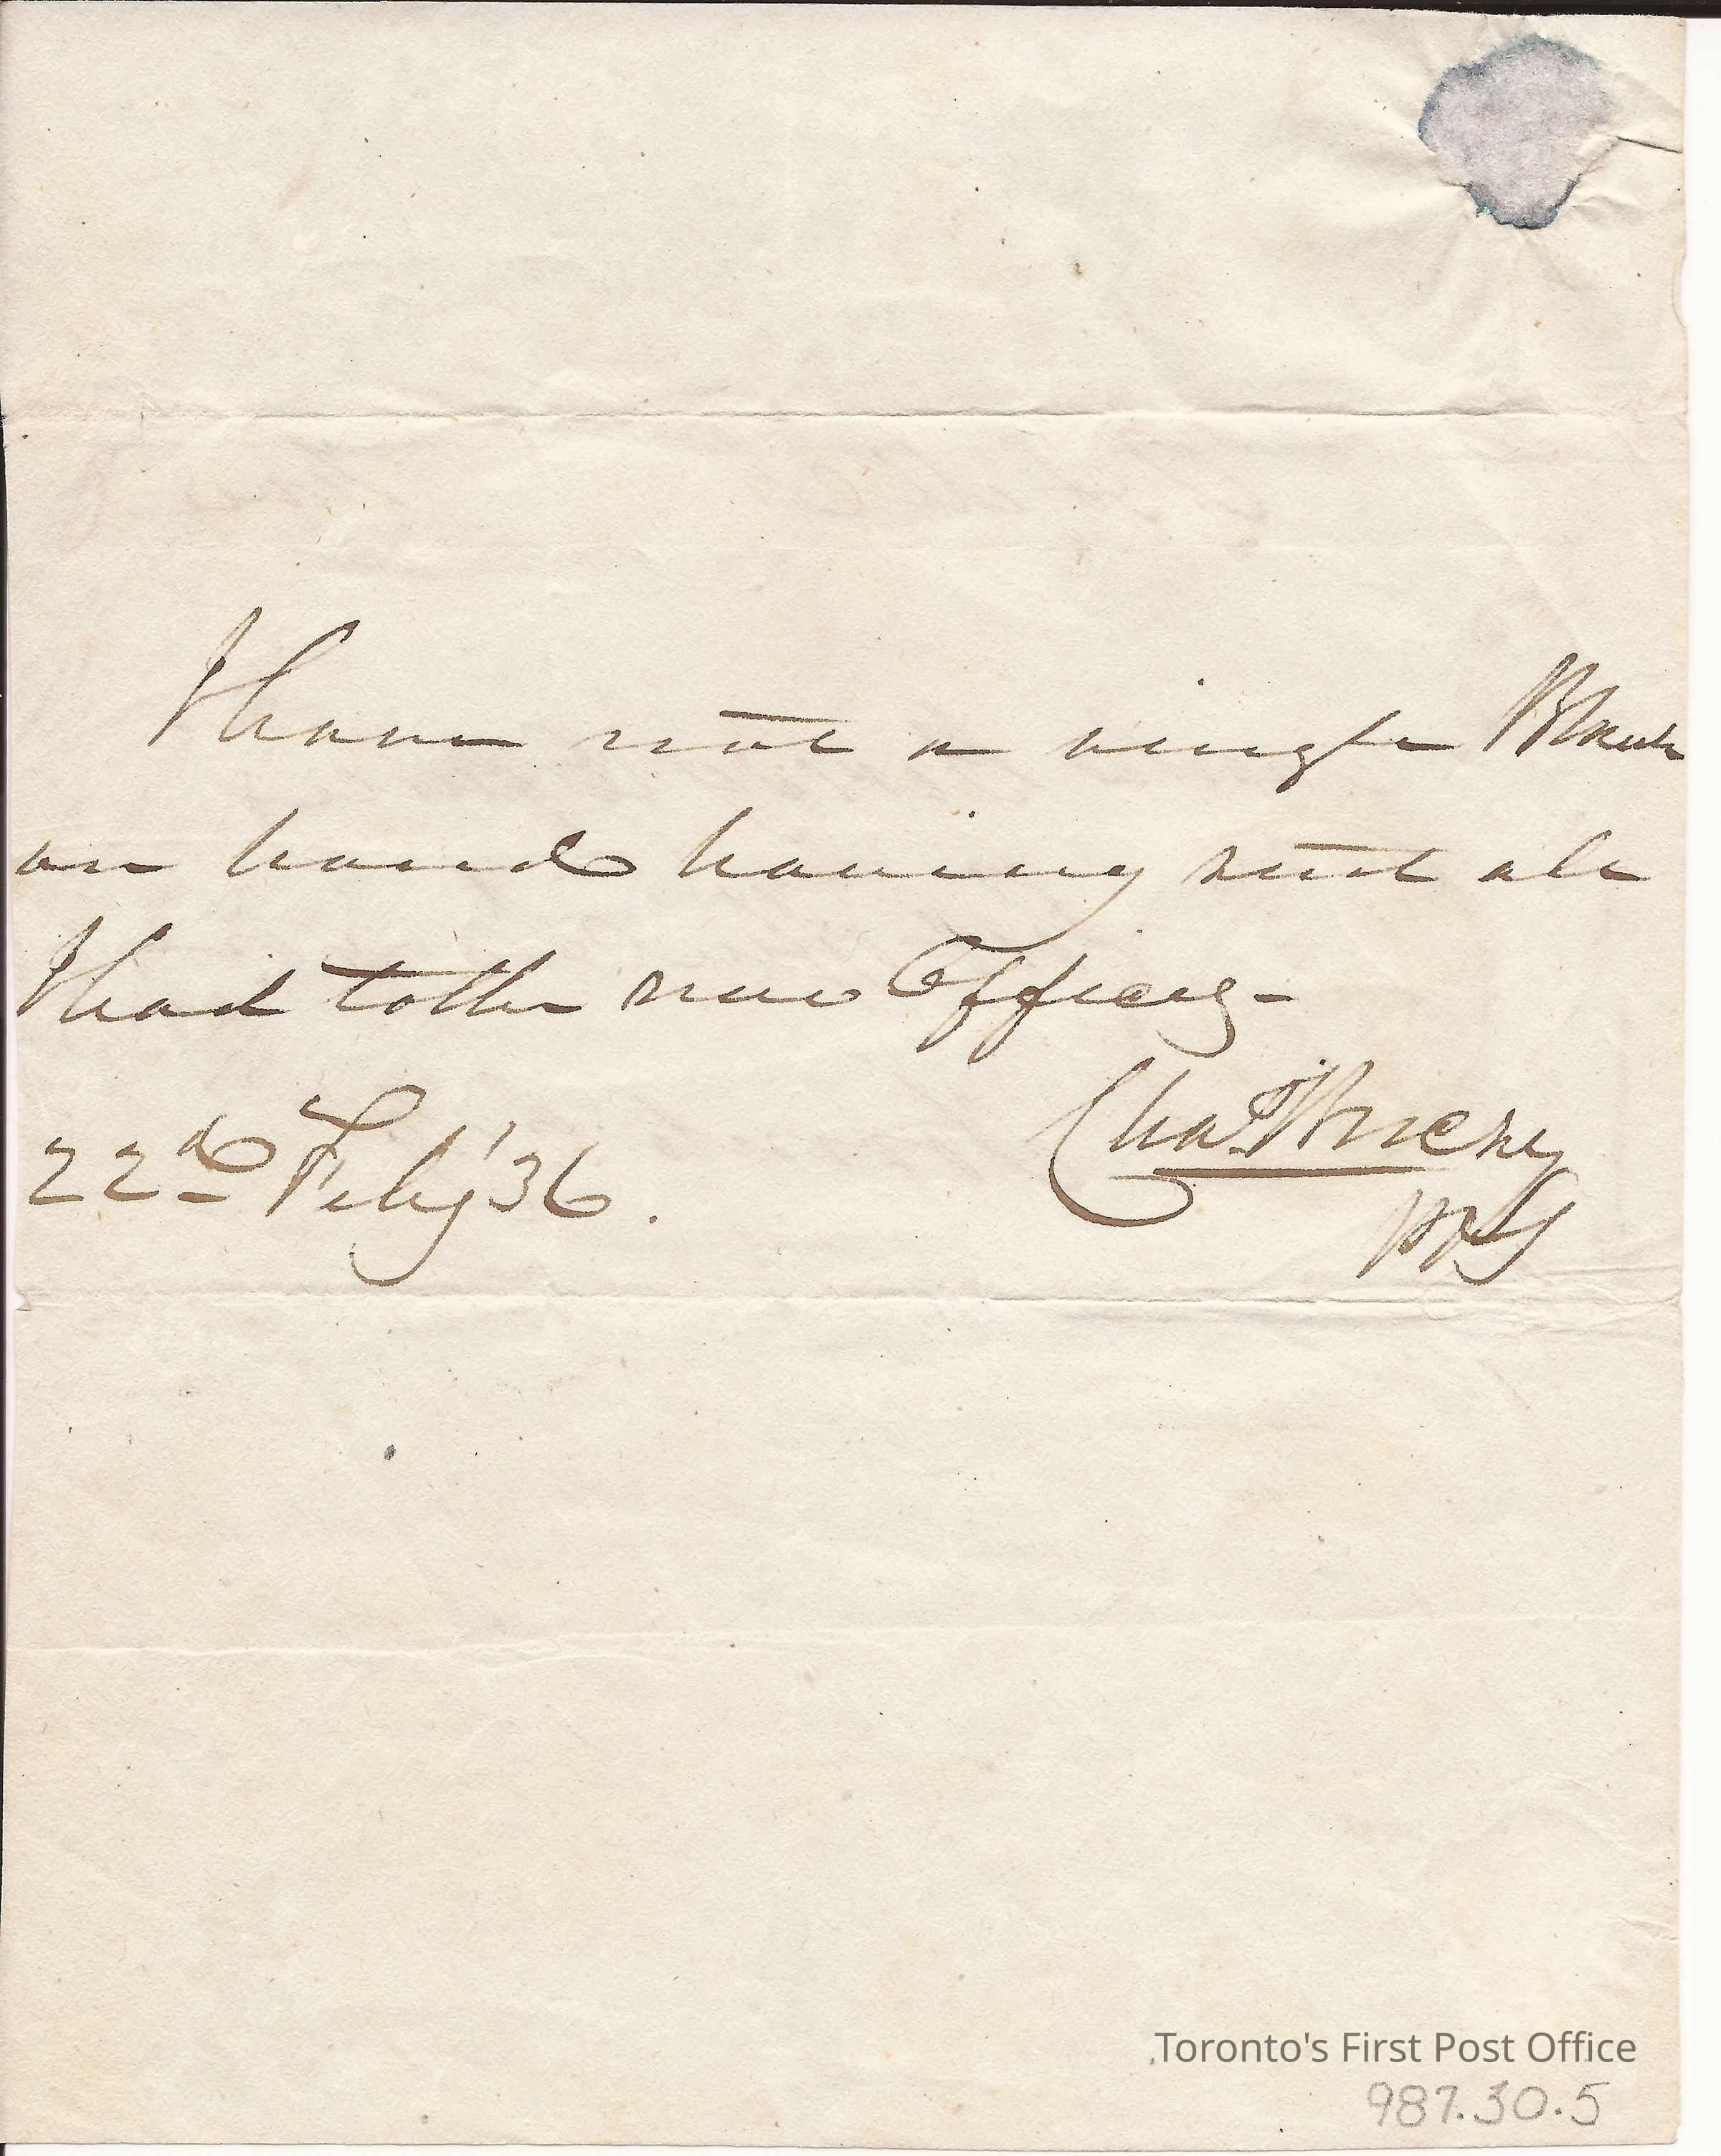 I have not a single Blank
on hand having sent all
I had to the new Offices -
22nd Feby '36.
Chas. Berczy
PM
Toronto's First Post Office
987.30.5